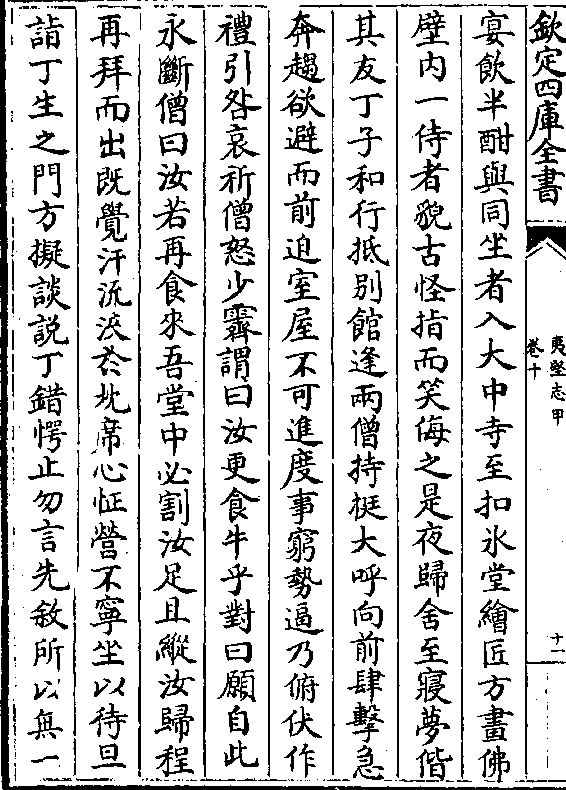 欽定四庫全書
夷堅志甲
卷十
十一
宴飲半酣與同坐者入大中寺至扣氷堂繪匠方畫佛
壁内一侍者貌古怪指而笑侮之是夜歸舍至寢夢偕
其友丁子和行抵别館逢兩僧持梃大呼向前肆擊急
奔趨欲避而前迫室屋不可進度事窮勢逼乃俯伏作
禮引咎哀祈僧怒少霽謂曰汝更食牛乎對曰願自此
永斷僧曰汝若再食來吾堂中必割汝足且縱汝歸程
再拜而出既覺汗流浹於枕席心怔營不寧坐以待旦
詣丁生之門方擬談説丁錯愕止勿言先敘所以無一